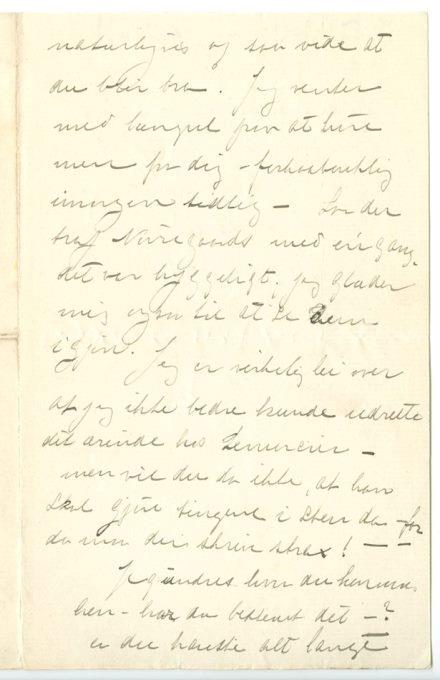 naturligvis og saa vide at
du blir bra. Jeg venter
med længsel paa at høre
mere fra dig – forhaabentlig
imorgen tidlig – Saa der
traf Nørregaards med én gang.
det var hyggeligt. jeg glæder
mig ogsaa til at se Dem
igjen. Jeg er virkelig lei over
at jeg ikke bedre kunde udrette
dit ærinde hos Lemercier –
men vil du da ikke, at han
skal gjøre tingene i Sten da – for
da maa du skrive strax! – –
Jeg undres hvor du kommer
hen – har du bestemt det –?
er du kanske alt langt